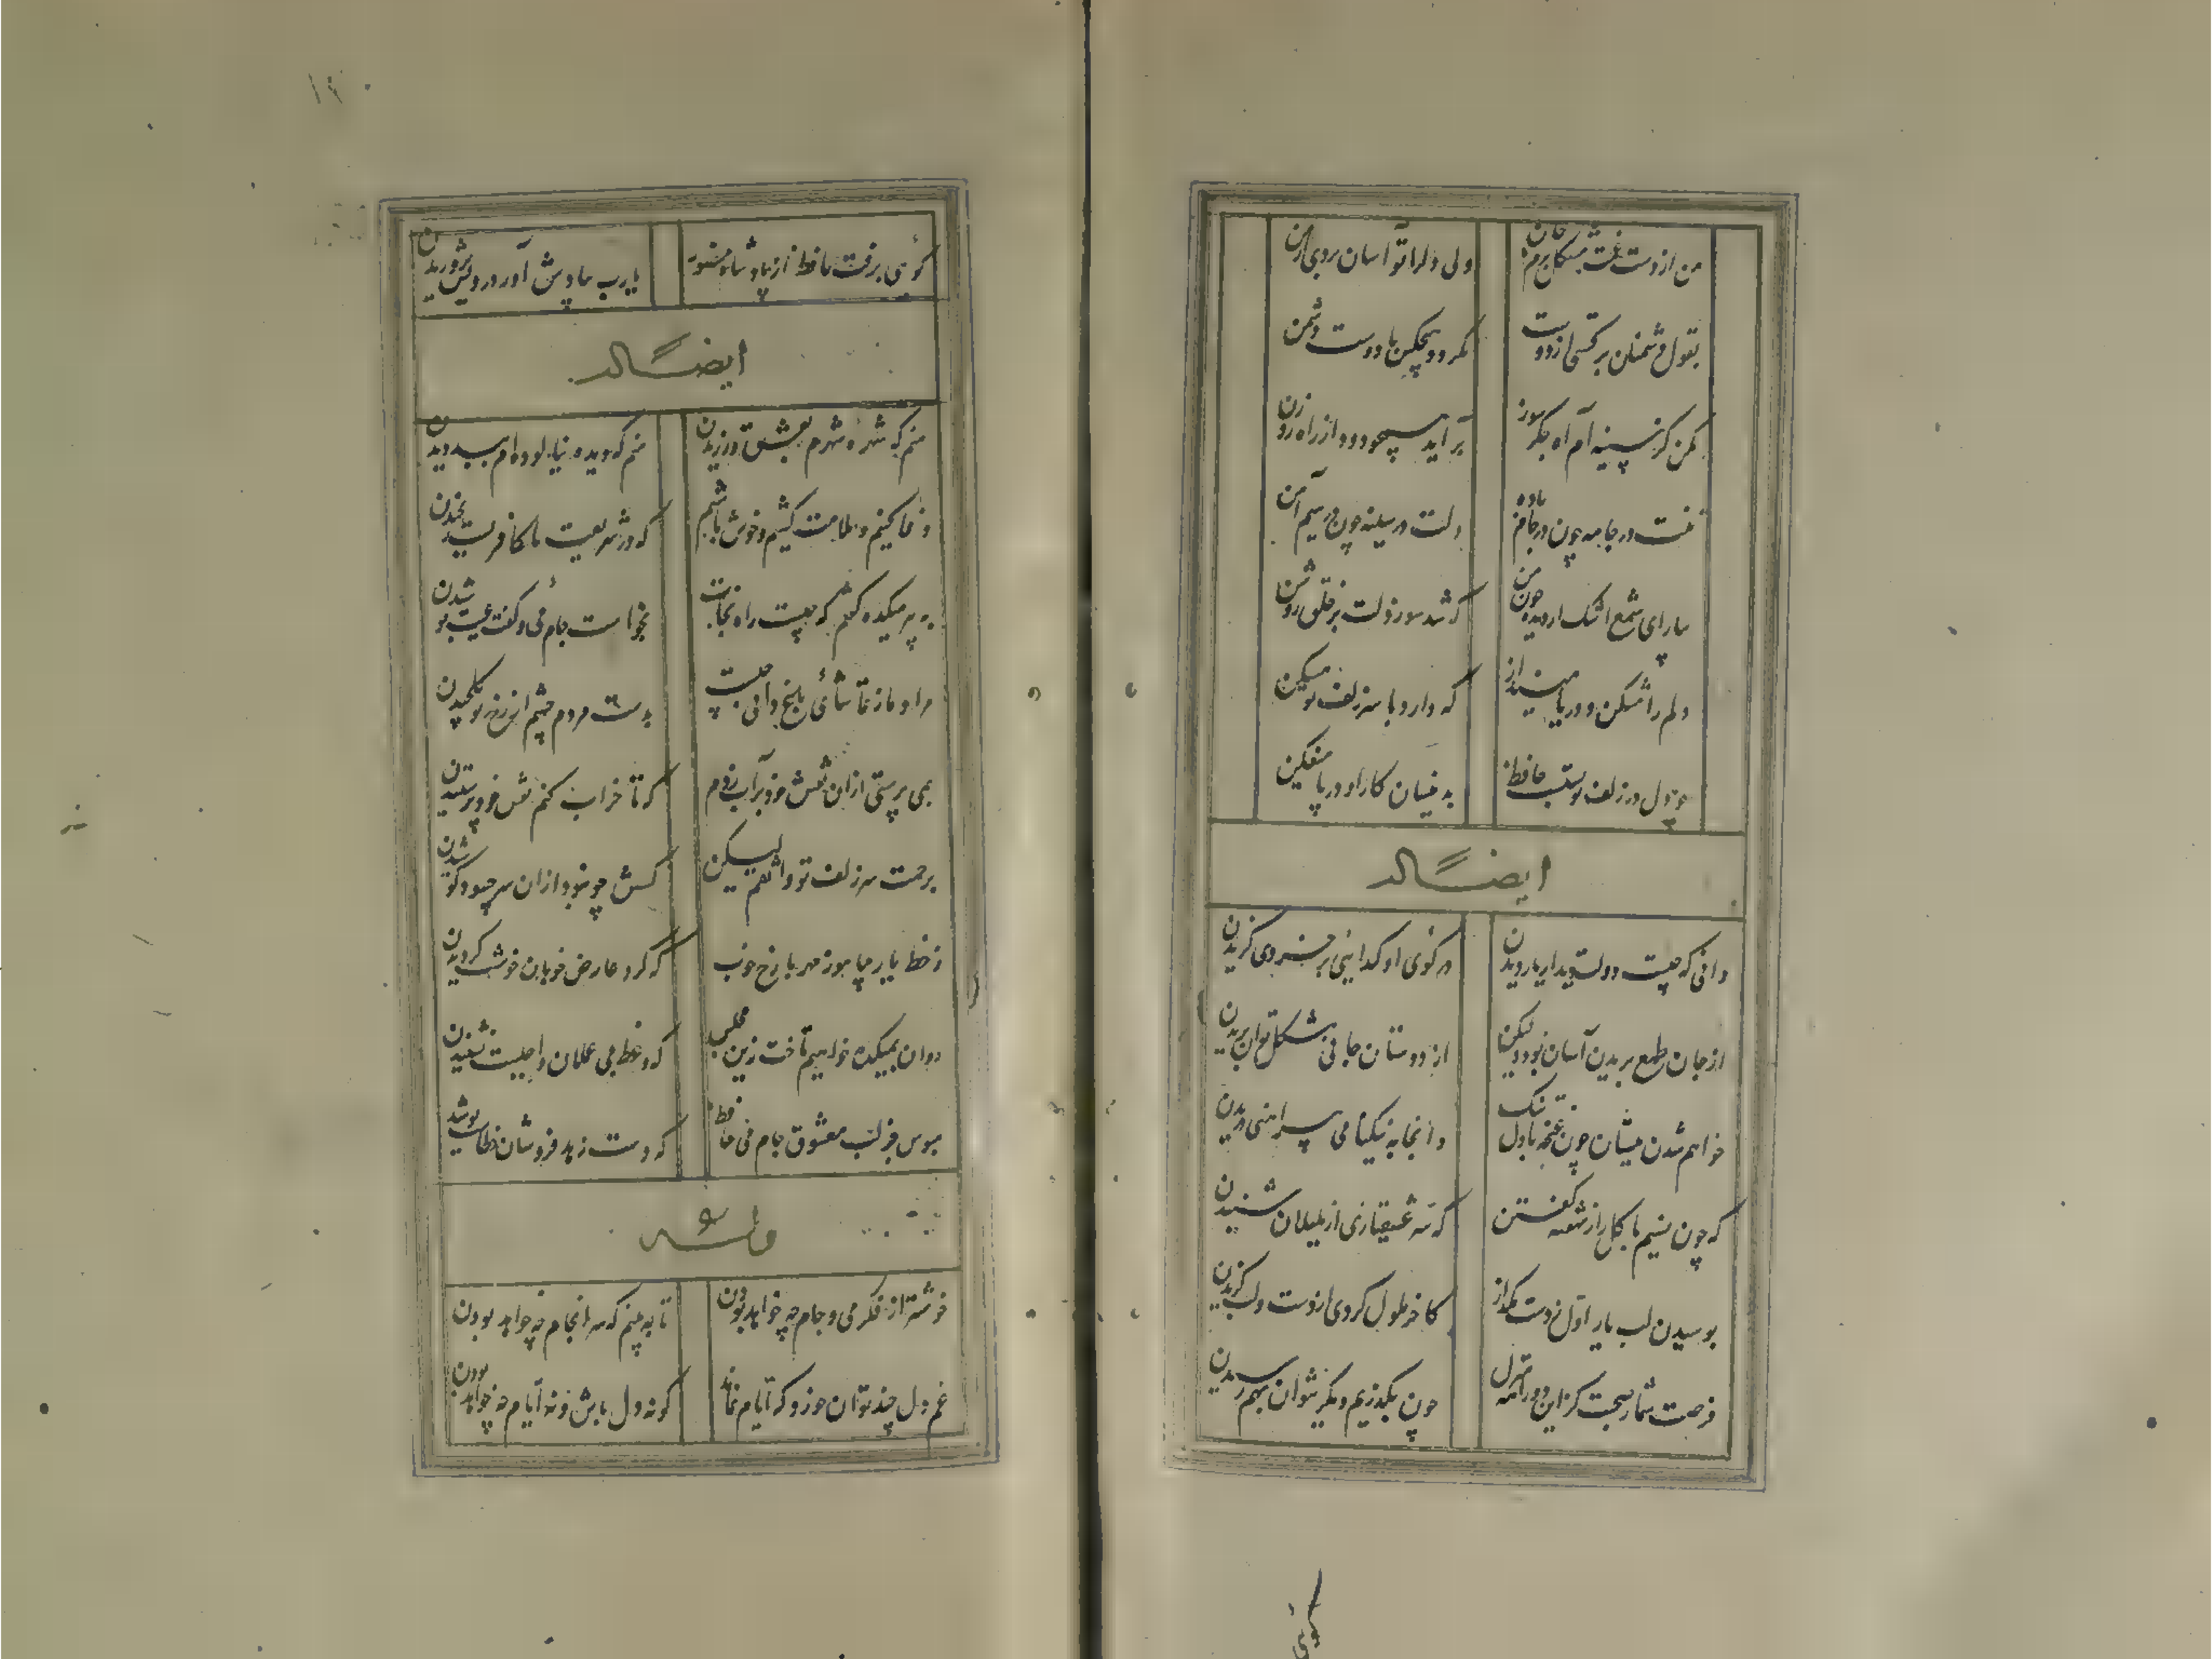 من از دست غمت مشکل برم جان
ولی دل را تو آسان بردی از من
بقول دشمنان برگشتی از دوست
نگردد هیچکس با دوست دشمن
مکن کز سینه‌ام آه جگرسوز
برآید همچو دود از راه روزن
تنت در جامه چون در جام باده
دلت در سینه چون در سیم آهن
ببار ای شمع اشک از دیده چون من
که شد سوز دلت بر خلق روشن
دلم را مشکن و در پا مینداز
که دارد با سر زلف تو مسکن
چو دل در زلف تو بستست حافظ
بدینسان کار او در پا میفکن
ایضاً له
دانی که چیست دولت دیدار یار دیدن
در کوی او گدایی بر خسروی گزیدن
از جان طمع بریدن آسان بود ولیکن
از دوستان جانی مشکل توان بریدن
خواهم شدن ببستان چون غنچه با دل تنگ
وانجا به نیکنامی پیراهنی دریدن
که چون نسیم با گل راز نهفته گفتن
که سر عشقبازی از بلبلان شنیدن
بوسیدن لب یار اول ز دست مگذار
کاخر ملول گردی از دست و لب گزیدن
فرصت شمار صحبت کز این دو راهه منزل
چون بگذریم دیگر نتوان بهم رسیدن
گوئی
گوئی برفت حافظ از یاد شاه منصور
یارب بیادش آور درویش پروریدن
ایضاً له
منم که شهره شهرم بعشق ورزیدن
منم که دیده نیالوده‌ام ببد دیدن
وفا کنیم و ملامت کشیم و خوش باشیم
که در شریعت ما کافریست رنجیدن
به پیر میکده گفتم که چیست راه نجات
بخواست جام می و گفت عیب پوشیدن
مراد ما ز تماشائ باغ دانی چیست
بدست مردم چشم از رخ تو گل چیدن
بمی پرستی از ان نقش خود بر آب زدم
که تا خراب کنم نقش خود پرستیدن
برحمت سر زلف تو واثقم لیکن
کشش چو نبود از ان سر چه سود کوشیدن
ز خط یار بیاموز مهر با رخ خوب
که گرد عارض خوبان خوشست گردیدن
روان بمیکده خواهیم تاخت زین مجلس
که وعظ بی عملان واجبست نشنیدن
مبوس جز لب معشوق جام می حافظ
که دست زهد فروشان خطاست بوسیدن
وله
خوشتر از فکر می و جام چه خواهد بودن
تا به بینم که سرانجام چه خواهد بودن
غم دل چند توان خورد که ایام نماند
گو نه دل باش و نه ایام چه خواهد بودن